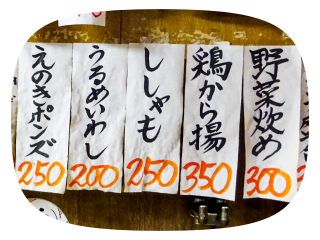 野菜炒め
300
鶏から揚
350
ししゃも
250
うるめいわし
200
えのきポンズ
250